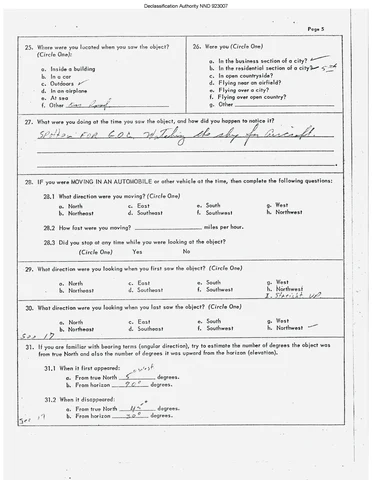 Declassification Authority NND 923007
Page 5
25. Where were you located when you saw the object? (Circle One):
a. Inside a building
b. In a car
c. Outdoors ✓
d. In an airplane
e. At sea
f. Other
26. Were you (Circle One)
a. In the business section of a city? ✓
b. In the residential section of a city?
c. In open countryside?
d. Flying near an airfield?
e. Flying over a city?
f. Flying over open country?
g. Other
27. What were you doing at the time you saw the object, and how did you happen to notice it?
Spotter FOR G.O.C. Watching the sky for Aircraft.
28. IF you were MOVING IN AN AUTOMOBILE or other vehicle at the time, then complete the following questions:
28.1 What direction were you moving? (Circle One)
a. North c. East e. South g. West
b. Northeast d. Southeast f. Southwest h. Northwest
28.2 How fast were you moving? miles per hour.
28.3 Did you stop at any time while you were looking at the object?
(Circle One) Yes No
29. What direction were you looking when you first saw the object? (Circle One)
a. North c. East e. South g. West
b. Northeast d. Southeast f. Southwest h. Northwest
I. Straight UP
30. What direction were you looking when you last saw the object? (Circle One)
a. North c. East e. South g. West
b. Northeast d. Southeast f. Southwest h. Northwest ✓
See 17
31. If you are familiar with bearing terms (angular direction), try to estimate the number of degrees the object was
from true North and also the number of degrees it was upward from the horizon (elevation).
31.1 When it first appeared:
West
a. From true North 5° degrees.
b. From horizon 90° degrees.
31.2 When it disappeared:
a. From true North 45° degrees.
b. From horizon 30° degrees.
See 17